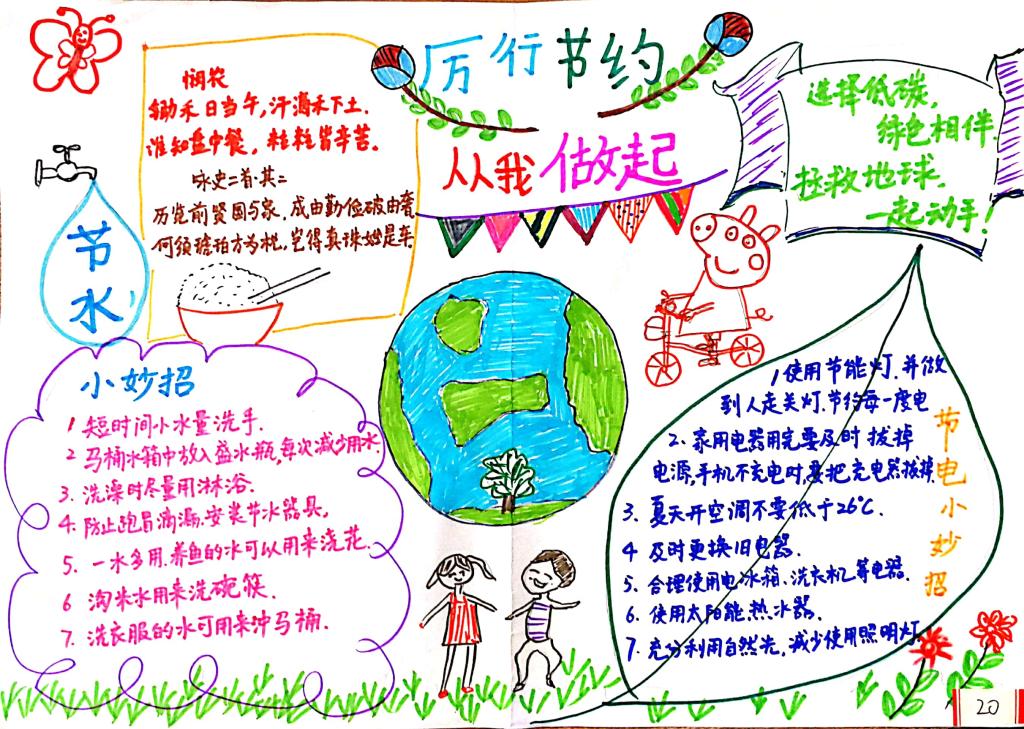 厉行节约
从我做起
悯农
锄禾日当午,汗滴禾下土.
谁知盘中餐,粒粒皆辛苦.
咏史二首·其二
历览前贤国与家,成由勤俭破由奢.
何须琥珀方为枕,岂得真珠始是车
选择低碳,
绿色相伴.
拯救地球.
一起动手!
节水
小妙招
1 短时间小水量洗手.
2 马桶水箱中放入盛水瓶,每次减少用水.
3. 洗澡时尽量用淋浴.
4. 防止跑冒滴漏.安装节水器具,
5. 一水多用.养鱼的水可以用来浇花.
6 淘米水用来洗碗筷.
7. 洗衣服的水可用来冲马桶.
节电小妙招
1 使用节能灯.并做
到人走关灯.节约每一度电
2. 家用电器用完要及时拔掉
电源,手机不充电时,要把充电器拔掉.
3. 夏天开空调不要低于26℃.
4 及时更换旧电器.
5. 合理使用电冰箱、洗衣机等电器.
6. 使用太阳能热水器.
7. 充分利用自然光,减少使用照明灯
20